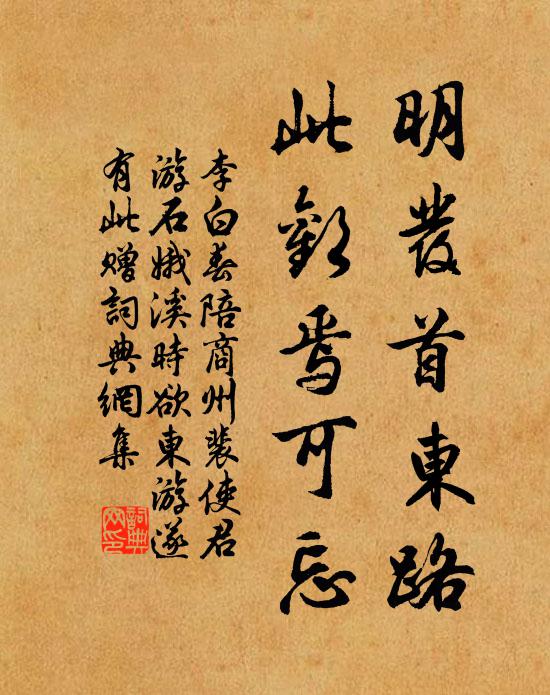 明發首東路
此歡焉可忘
李白春陪商州裴使君
游石娥溪時欲東游遂
有此贈詞典網集
詞典